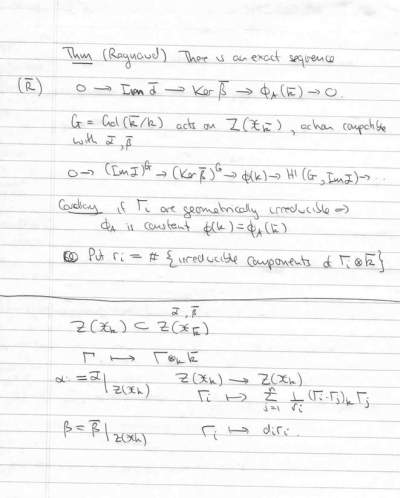 Thm (Raynaud) There is an exact sequence
(k̄) 0 → Im ᾱ → Ker β̄ → ϕ_A(k̄) → 0.
G = Gal(k̄/k) acts on Z(𝔛_k̄), action compatible
with ᾱ, β̄
0 → (Im ᾱ)^G → (Ker β̄)^G → ϕ(k) → H¹(G, Im ᾱ) → ...
Corollary if Γ_i are geometrically irreducible ⇒
ϕ_A is constant ϕ(k) = ϕ_A(k̄)
Put r_i = # {irreducible components of Γ_i ⊗ k̄}
ᾱ, β̄
Z(𝔛_k) ⊂ Z(𝔛_k̄)
Γ ↦ Γ ⊗_k k̄
α = ᾱ|_Z(𝔛_k) Z(𝔛_k) → Z(𝔛_k)
Γ_i ↦ Σ_{j=1}^n 1/r_i (Γ_i·Γ_j)_k Γ_j
β = β̄|_Z(𝔛_k) Γ_i ↦ d_i r_i.